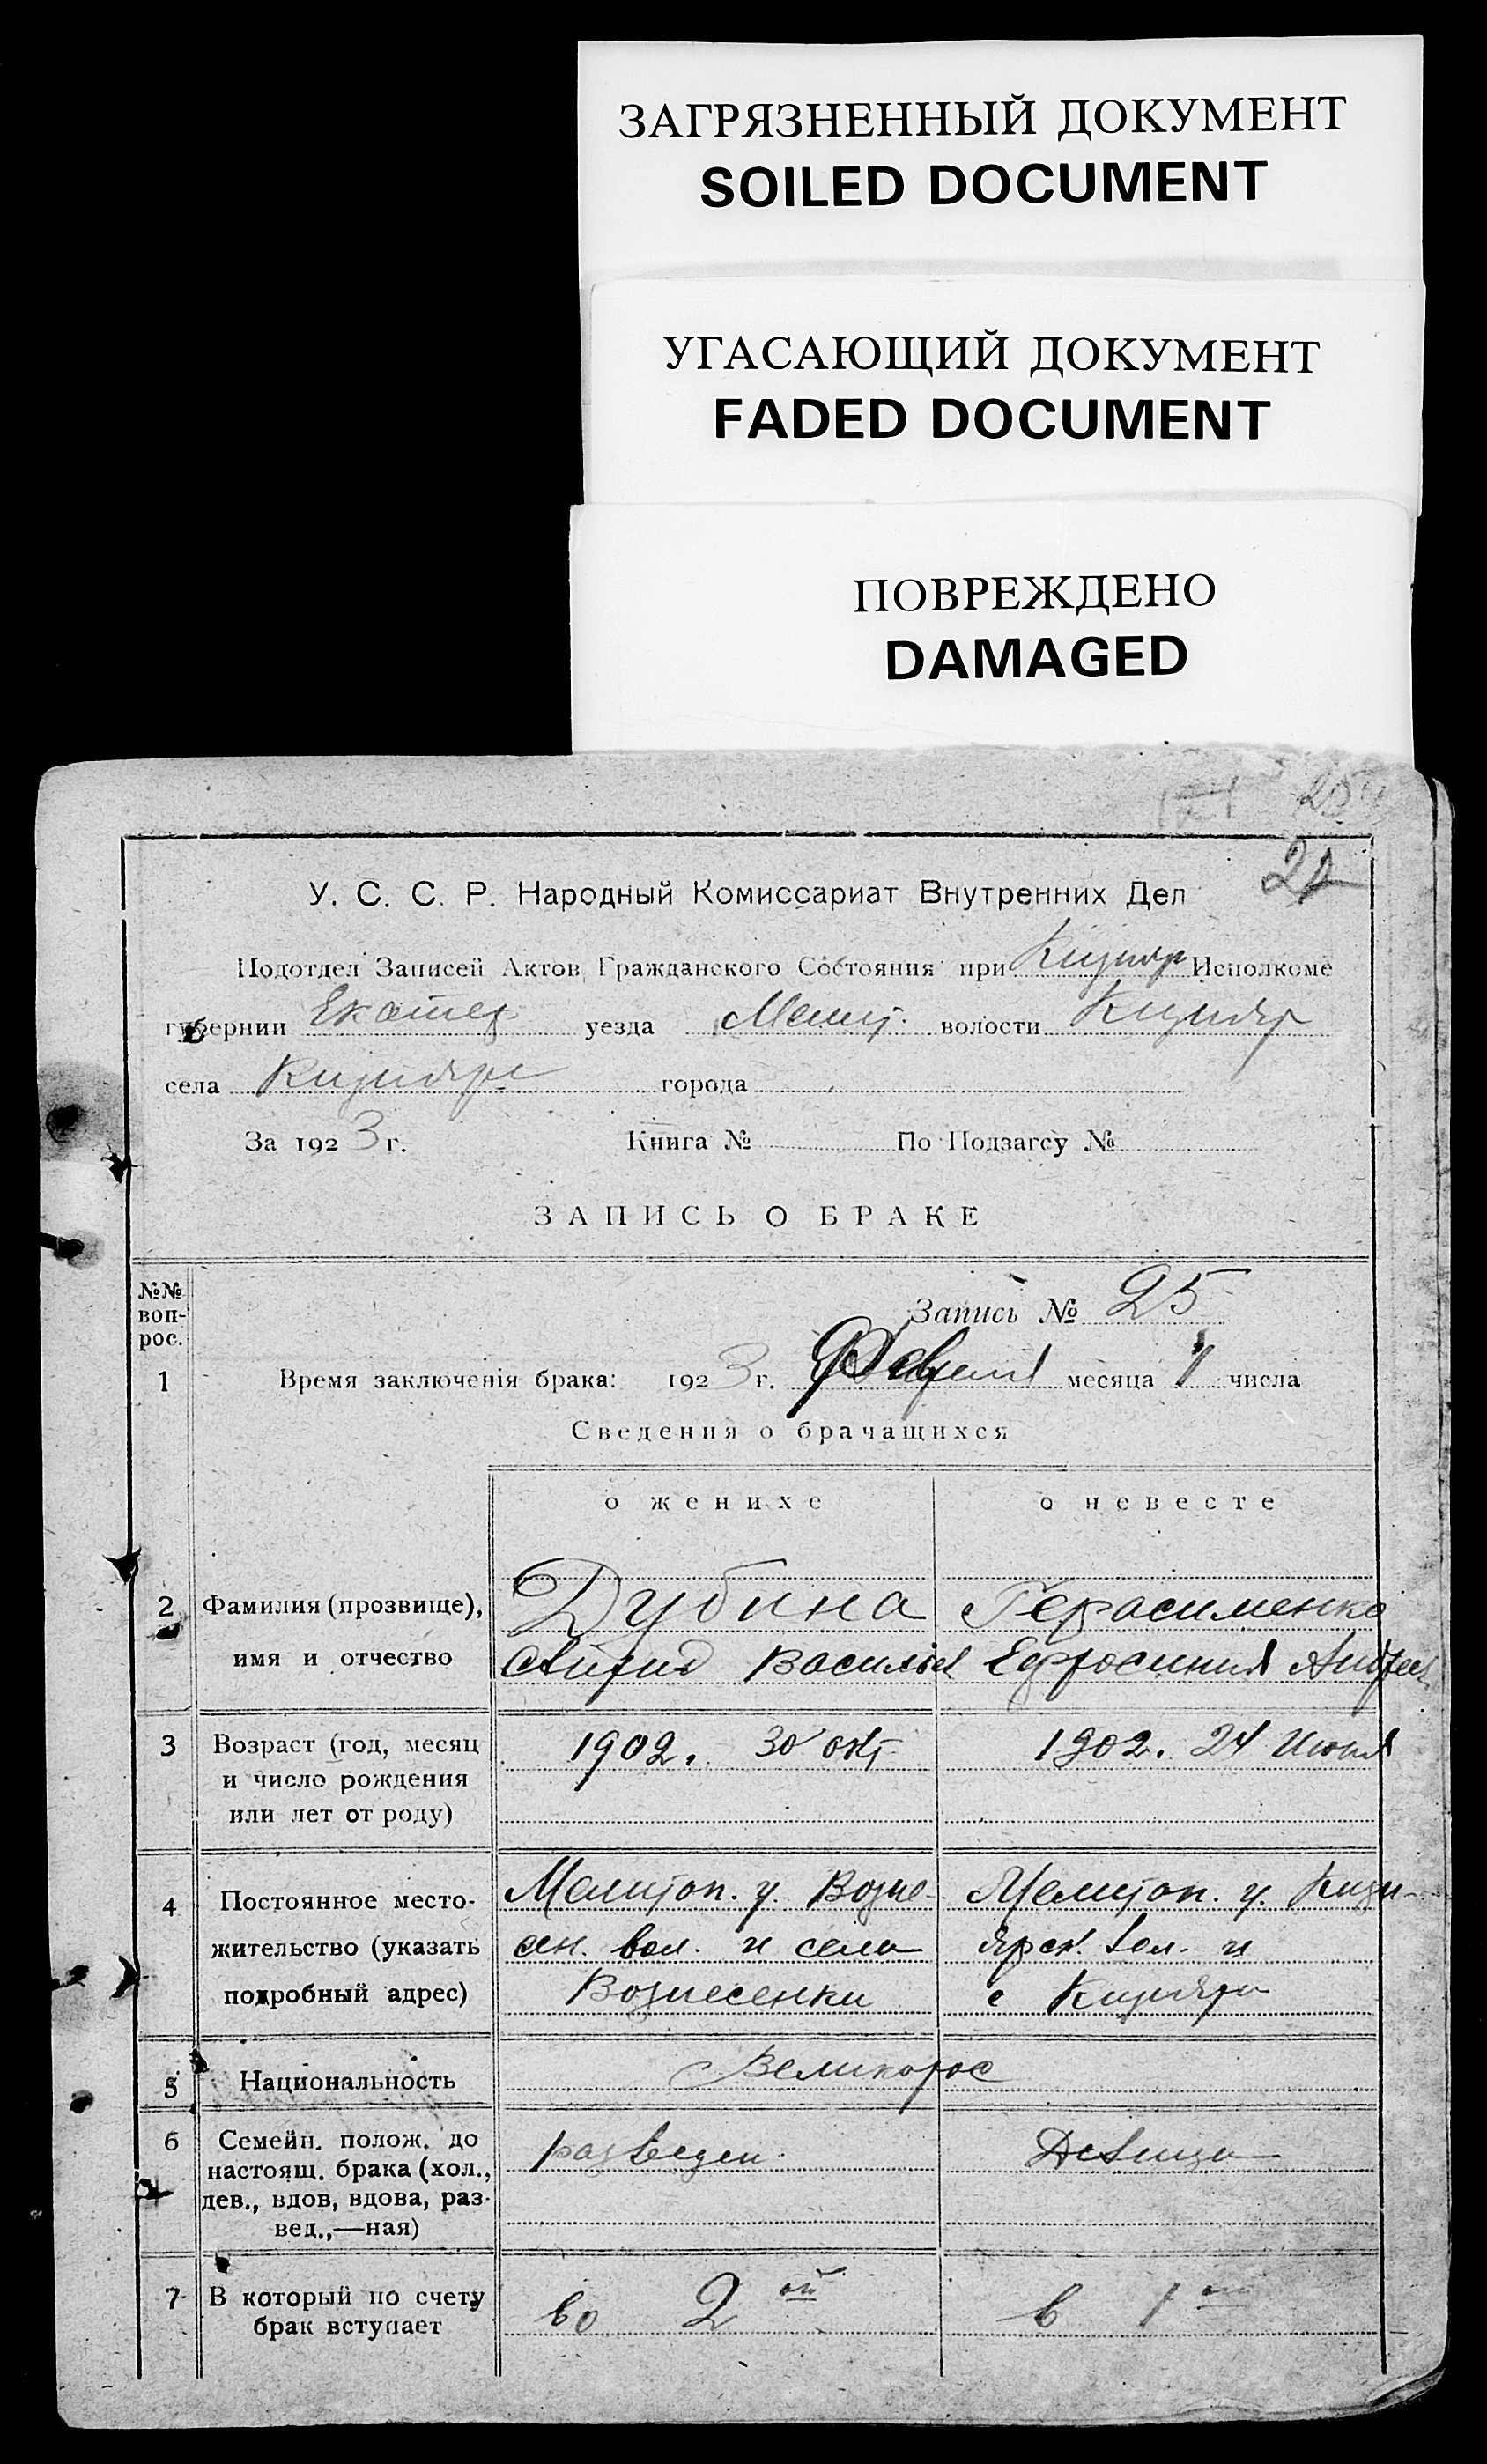 ЗАГРЯЗНЕННЫЙ ДОКУМЕНТ
SOILED DOCUMENT
УГАСАЮЩИЙ ДОКУМЕНТ
FADED DOCUMENT
ПОВРЕЖДЕНО
DAMAGED
У. С. С. Р. Народный Комиссариат Внутренних Дел
Подотдел Записей Актов Гражданского Состояния при Кизияр Исполкоме
губернии Екатер уезда Мелит. волости Кизияр
села Кизияре города
За 1923 г. Книга № По Подзагсу №
ЗАПИСЬ О БРАКЕ
№№ вопрос.
Запись № 25
1 Время заключенія брака: 1923 г. месяца числа
Сведения о брачащихся
о женихе о невесте
2 Фамилия (прозвище), Дубина Герасименко
имя и отчество Васильев Ефросиния Андреев
3 Возраст (год, месяц 1902. 30 окт. 1902. 24 Июня
и число рождения
или лет от роду)
4 Постоянное место- Мелитоп. у. Возне- Мелитоп. у. Кизи-
жительство (указать сен. вол. и села ярск. вол. и
подробный адрес) Вознесенки с Кизияри
5 Национальность Великорос
6 Семейн. полож. до разведен Девица
настоящ. брака (хол.,
дев., вдов, вдова, раз-
вед.,—ная)
7 В который по счету во 2 ой в 1 ый
брак вступает